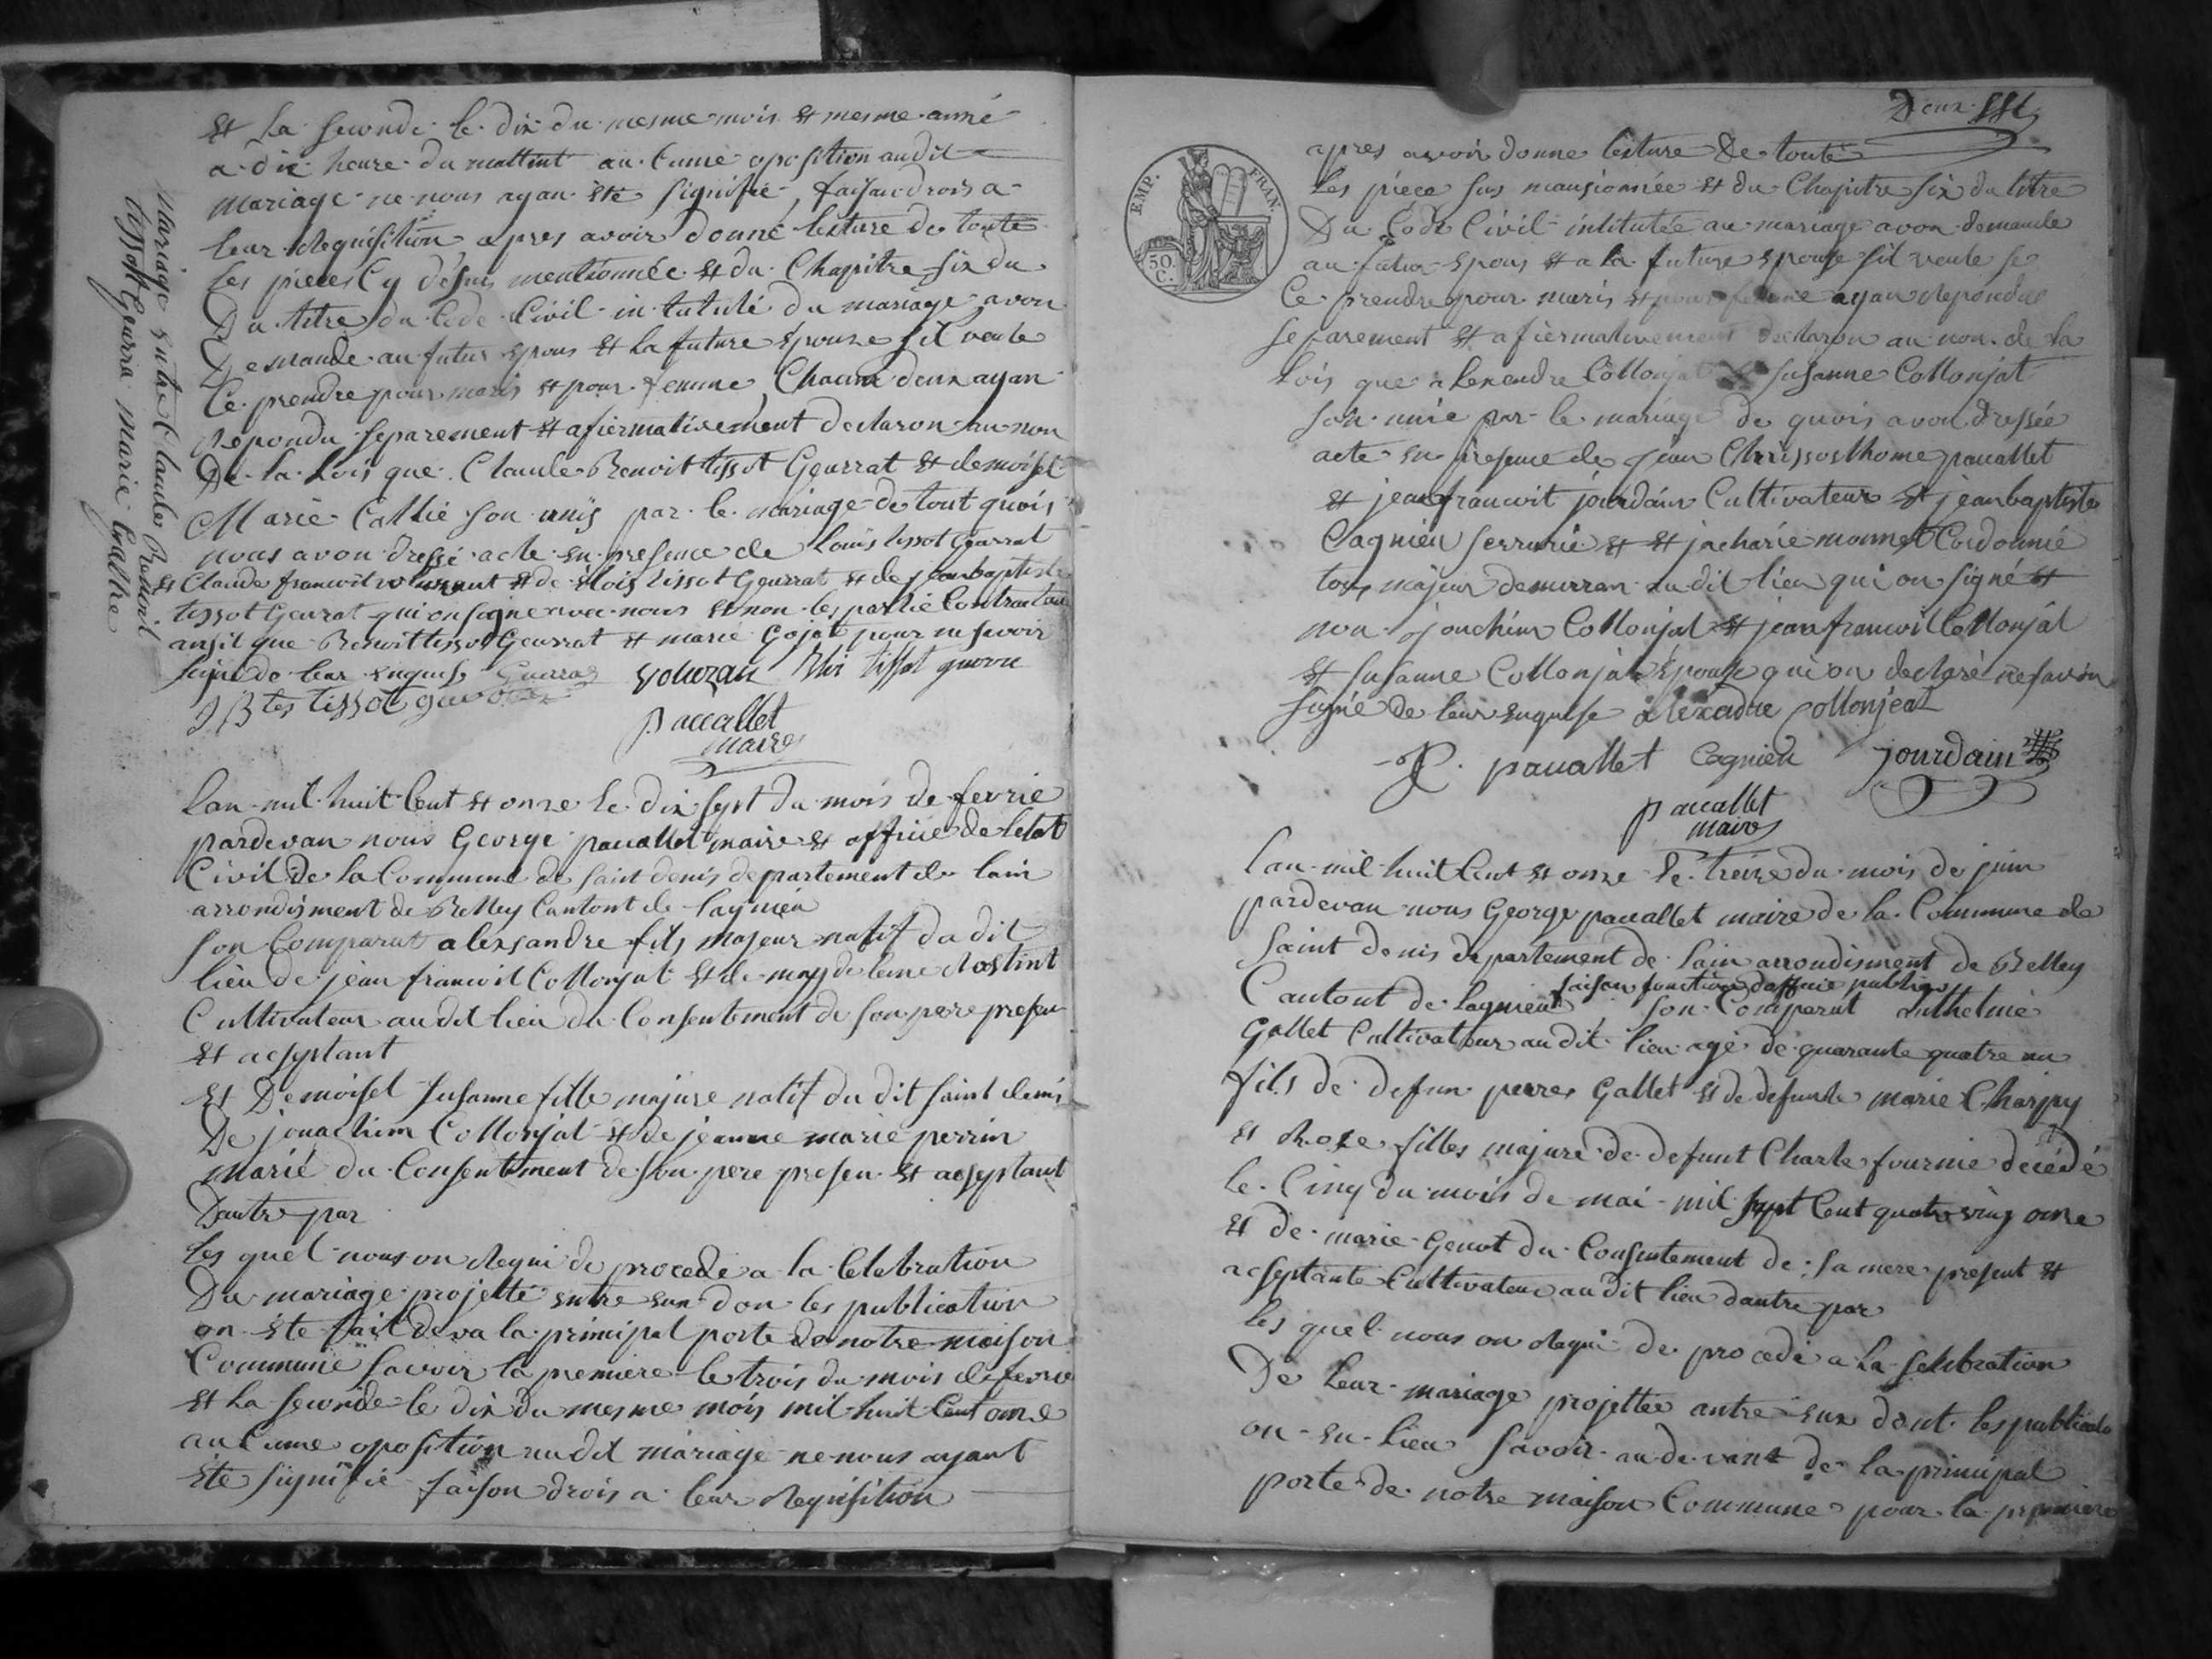 Et la seconde le dix du mesme mois et mesme anné
a dix heure du mattint aucume oposition audit
mariage ne nous ayan été signifié, faisan drois a
leur Requisition apres avoir donné lecture de toute
les pieces Cy désus mentionnée et du Chapitre six du
Du titre du Code Civil intitulé du mariage avon
Demande au futur Epous et la future Epouse sil veule
Ce prendre pour maris et pour femme, Chacun deux ayan
Repondu separement et afiermativement declaron au non
De la Lois que Claude Benoit tissot Geurrat et demoisel
Marie Callie son unis par le mariage de tout quois
nous avon dressé acte en presence de Louis tissot Geurrat
et Claude francoit et de Elois tissot Geurrat et de jean baptiste
tissot Geurat qui on signe avec nous et non les partie Contractan
ansit que Benoit tissot Geurrat et marie Gojat pour ne savoir
signé de leur enquise Guerraz vollozan Eloi tissot guerre
J Btes tissot
paccallet
maire
Mariage Entre Claude Benoit
tissot Geurra marie Callhe
Lan mil huit Cent et onze le dix sept du mois de fevrié
pardevan nous George paccallet maire et officié de letat
Civil de la Commune de saint denis departement de lain
arrondisment de Belley Cantont de Lagnieu
son Comparut alexsandre fils majeur natif du dit
lieu de jean francoit Collonjat et de Rostint
Cultivateur au dit lieu du Consentement de son pere presen
et acseptant
et Demoisel susanne fille majure natif du dit saint denis
De jouachim Collonjat et de jeanne marie perrin
marié du Consentement de son pere presen et acseptant
Dautre par
Les quel nous on Requi de procedé a la Celebration
Du mariage projetté entre eux don les publication
on été fait deva la principal porte de notre maison
Commune savoir la premiere le trois du mois de fevrié
et la seconde le dix du mesme mois mil huit Cent onze
aucume oposition au dit mariage ne nous ayant
été signifié faison drois a leur Requisition
Deux
EMP. FRAN.
50.
C.
apres avoir donne lecture de toute
les piéce sus mansionnée et du Chapitre six du titre
Du Code Civil intitulée au mariage avon demande
au futur Epous et a la future Epouse sil veule se
Ce prendre pour maris et pour femme ayan Repondue
separement et afiermativement declaron au non de la
Lois que alexendre Collonjat et susanne Collonjat
son unie par le mariage de quois avon dressée
acte en presence de jean Chrissosthome paccallet
et jean francoit jourdain Cultivateur et jean baptiste
Cagnieu serrurié et et jacharie monnet Cordonnié
tous majeur demurran au dit lieu qui on signé et
non jouchim Collonjat et jean francoit Collonjat
et susanne Collonjat Epouse qui on declaré ne savoir
signé de leur enquise alexadre Collonjeat
J C. paccallet Cagnieu jourdain
paccallet
maire
Lan mil huit Cent et onze le treize du mois de juin
pardevan nous George paccallet maire de la Commune de
saint denis departement de lain arrondisment de Belley
faisan fonction daffficié public
Cantont de Lagnieu son Comparut Anthelme
Gallet Cultivateur au dit lieu agé de quarante quatre an
fils de defun pierre Gallet et de defunte marie Charpy
et Roze filles majure de defunt Charle fournié decédé
le Cinq du mois de mai mil sept Cent quatre ving onze
et de marie Genot du Consentement de sa mere present et
acseptante Cultivateur au dit lieu dautre par
Les quel nous on Requi de procedé a la selebration
De leur mariage projettée antre eux dont les publicatio
on eu lieu savoir au devant de la principal
porte de notre maison Commune pour la premiere